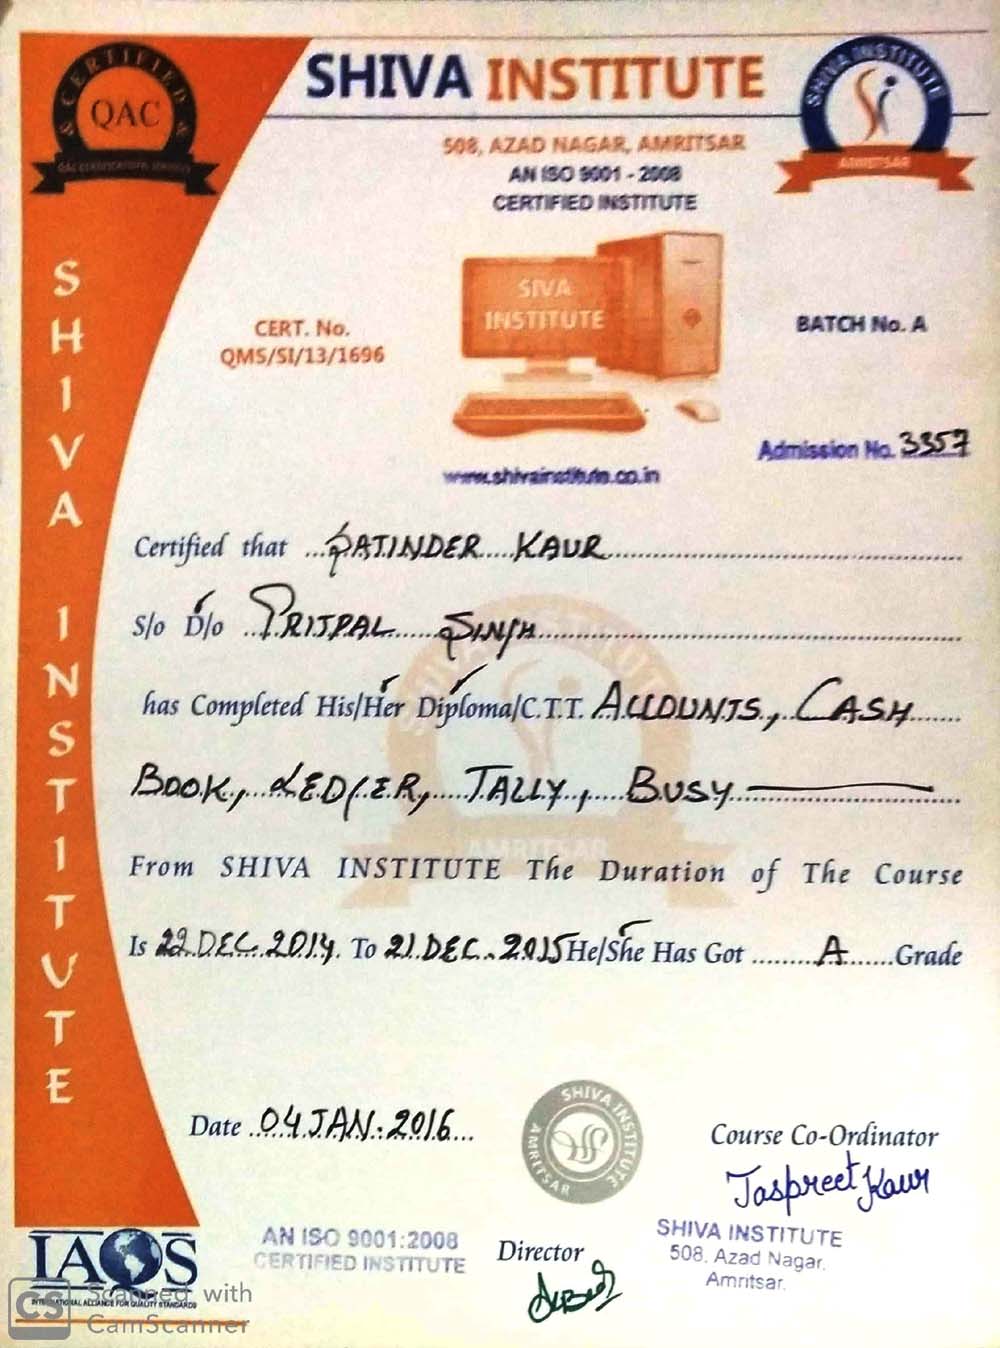 CERTIFIED
QAC
QAC CERTIFICATION SERVICES
SHIVA INSTITUTE
SHIVA INSTITUTE
Si
AMRITSAR
508, AZAD NAGAR, AMRITSAR
AN ISO 9001 - 2008
CERTIFIED INSTITUTE
SIVA
INSTITUTE
CERT. No.
QMS/SI/13/1696
BATCH No. A
Admission No. 3357
www.shivainstitute.co.in
SHIVA INSTITUTE
Certified that SATINDER KAUR
S/o D/o PRITPAL SINGH
has Completed His/Her Diploma/C.T.T. ACCOUNTS, CASH
BOOK, LEDGER, TALLY, BUSY
SHIVA INSTITUTE
AMRITSAR
From SHIVA INSTITUTE The Duration of The Course
Is 22 DEC. 2014. To 21 DEC. 2015 He/She Has Got A Grade
Date 04 JAN. 2016
SHIVA INSTITUTE
AMRITSAR
Course Co-Ordinator
Jaspreet Kaur
SHIVA INSTITUTE
508, Azad Nagar,
Amritsar.
Director
AN ISO 9001:2008
CERTIFIED INSTITUTE
IAQS
INTERNATIONAL ALLIANCE FOR QUALITY STANDARDS
CS Scanned with
CamScanner